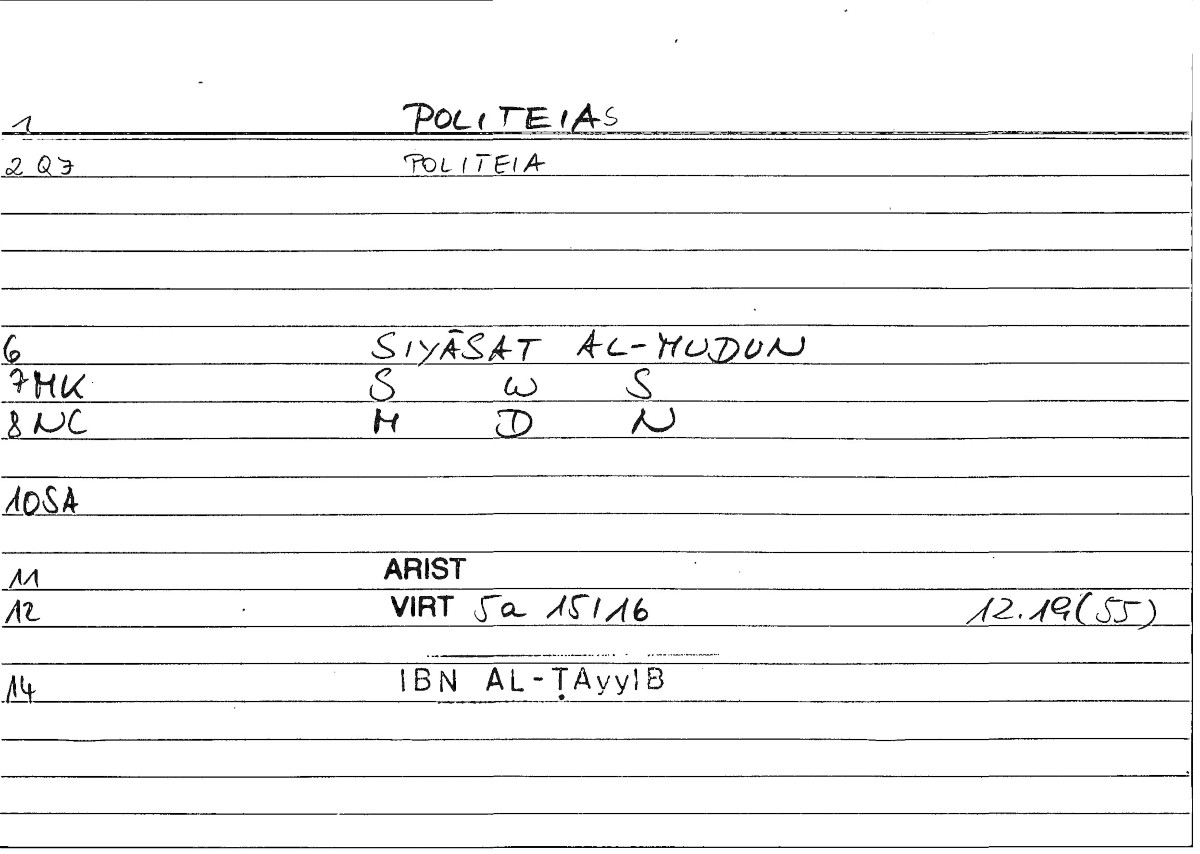 1 POLITEIAS
2 Q7 POLITEIA
6 SIYĀSAT AL-MUDUN
7 MK S W S
8 NC M D N
10 SA
11 ARIST
12 VIRT 5a 15/16 12.19(55)
14 IBN AL-ṬAyyIB